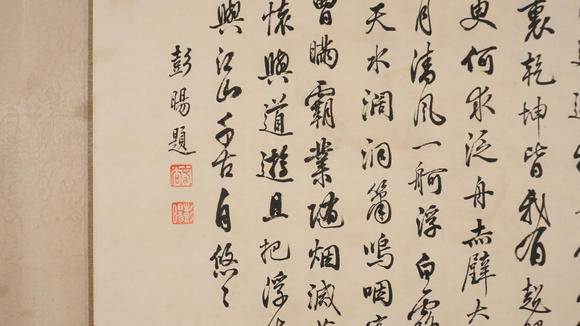 裏乾坤皆我有超
更何求泛舟赤壁大
月清風一舸浮白露
天水濶洞簫嗚咽
曹瞞霸業隨烟滅
懷與道遊且把浮
與江山千古自悠々
彭暘題